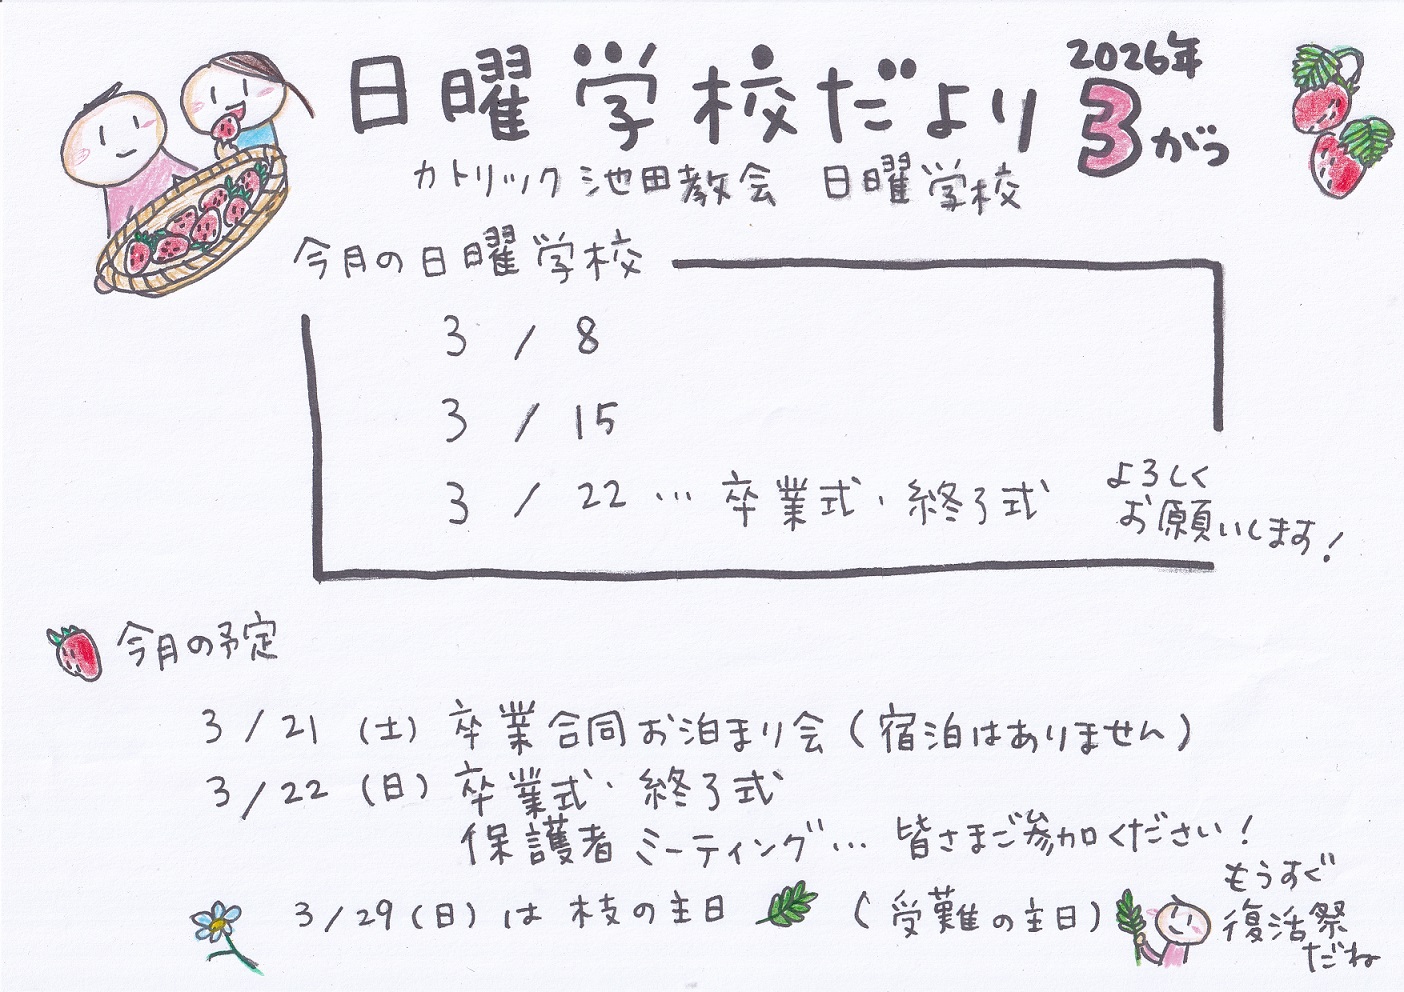 日曜学校だより 2026年 3がつ
カトリック池田教会 日曜学校
今月の日曜学校
3 / 8
3 / 15
3 / 22 … 卒業式・終了式
よろしく
お願いします！
今月の予定
3/21 (土) 卒業合同お泊まり会 (宿泊はありません)
3/22 (日) 卒業式・終了式
保護者ミーティング… 皆さまご参加ください！
3/29 (日) は 枝の主日 (受難の主日)
もうすぐ
復活祭
だね